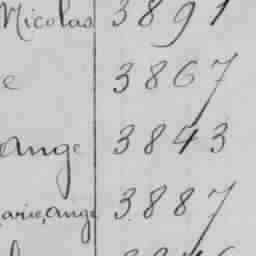 Nicolas 3891
e 3867
ange 3843
arie, ange 3887